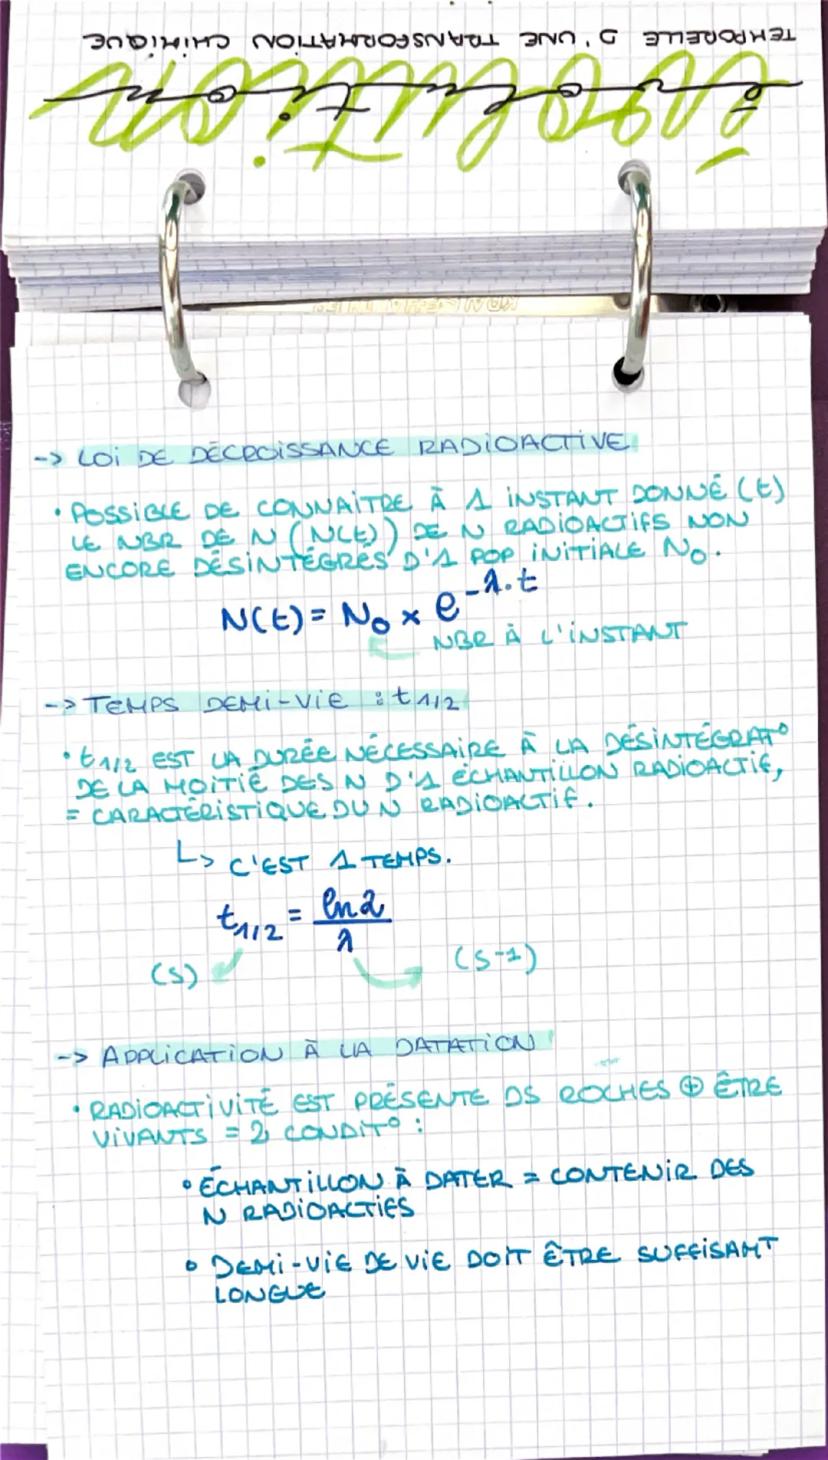 évolution
TEMPORELLE D'UNE TRANSFORMATION CHIMIQUE
-> LOI DE DÉCROISSANCE RADIOACTIVE
• POSSIBLE DE CONNAÎTRE À 1 INSTANT DONNÉ (t)
LE NBR DE N (N(t)) DE N RADIOACTIFS NON
ENCORE DÉSINTÉGRÉS D'1 POP INITIALE N₀.
N(t) = N₀ × e^-λ.t
NBR À L'INSTANT
-> TEMPS DEMI-VIE : t 1/2
• t1/2 EST LA DURÉE NÉCESSAIRE À LA DÉSINTÉGRAT°
DE LA MOITIÉ DES N D'1 ÉCHANTILLON RADIOACTIF,
= CARACTÉRISTIQUE DU N RADIOACTIF.
↳ C'EST 1 TEMPS.
t1/2 = ln2/λ
(s) (s-1)
-> APPLICATION À LA DATATION
• RADIOACTIVITÉ EST PRÉSENTE DS ROCHES ⊕ ÊTRE
VIVANTS = 2 CONDIT° :
• ÉCHANTILLON À DATER = CONTENIR DES
N RADIOACTIFS
• DEMI-VIE DE VIE DOIT ÊTRE SUFFISAMT
LONGUE